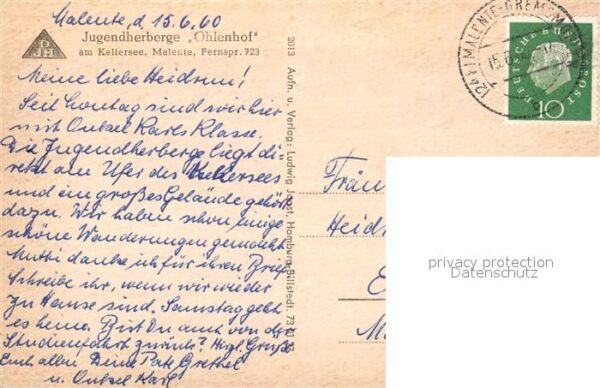 Malente, d. 15.6.60
Jugendherberge „Ohlenhof"
am Kellersee, Malente, Fernspr. 723
DJH
Meine liebe Heidrun!
Seit Sonntag sind wir hier
mit Onkel Karls Klasse.
Die Jugendherberge liegt di-
rekt am Ufer des Kellersees
und ein großes Gelände gehört
dazu. Wir haben schon einige
schöne Wanderungen gemacht.
Mutti danke ich für ihren Brief.
Schreibe ihr, wenn wir wieder
zu Hause sind. Samstag geht
es heim. Bist Du auch von der
Studienfahrt zurück? Hzgl. Grüße
Euch allen Deine Pate Grethel
u. Onkel Karl
2013 Aufn. u. Verlag: Ludwig Jogst, Hamburg-Billstedt, 73
(24b) MALENTE-GREMSM
15.6.
DEUTSCHE BUNDESPOST
10
Fräu
Heid
privacy protection
Datenschutz